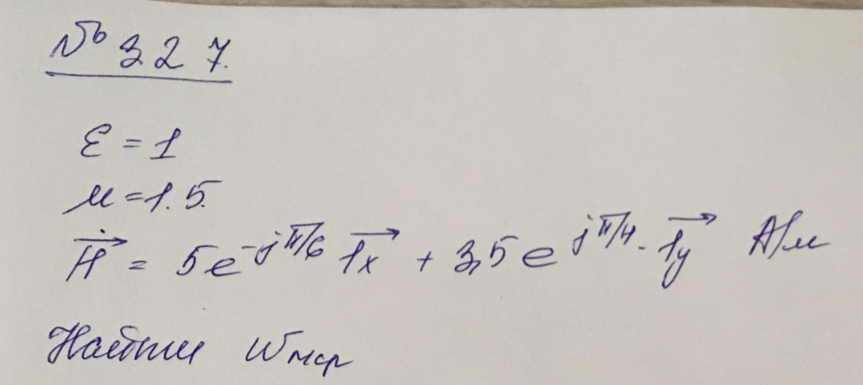 № 3.2 7.
ε = 1
μ = 1.5.
Ḣ⃗ = 5e^{-jπ/6} 1⃗x + 3,5 e^{jπ/4}. 1⃗y А/м
Найти Wмср